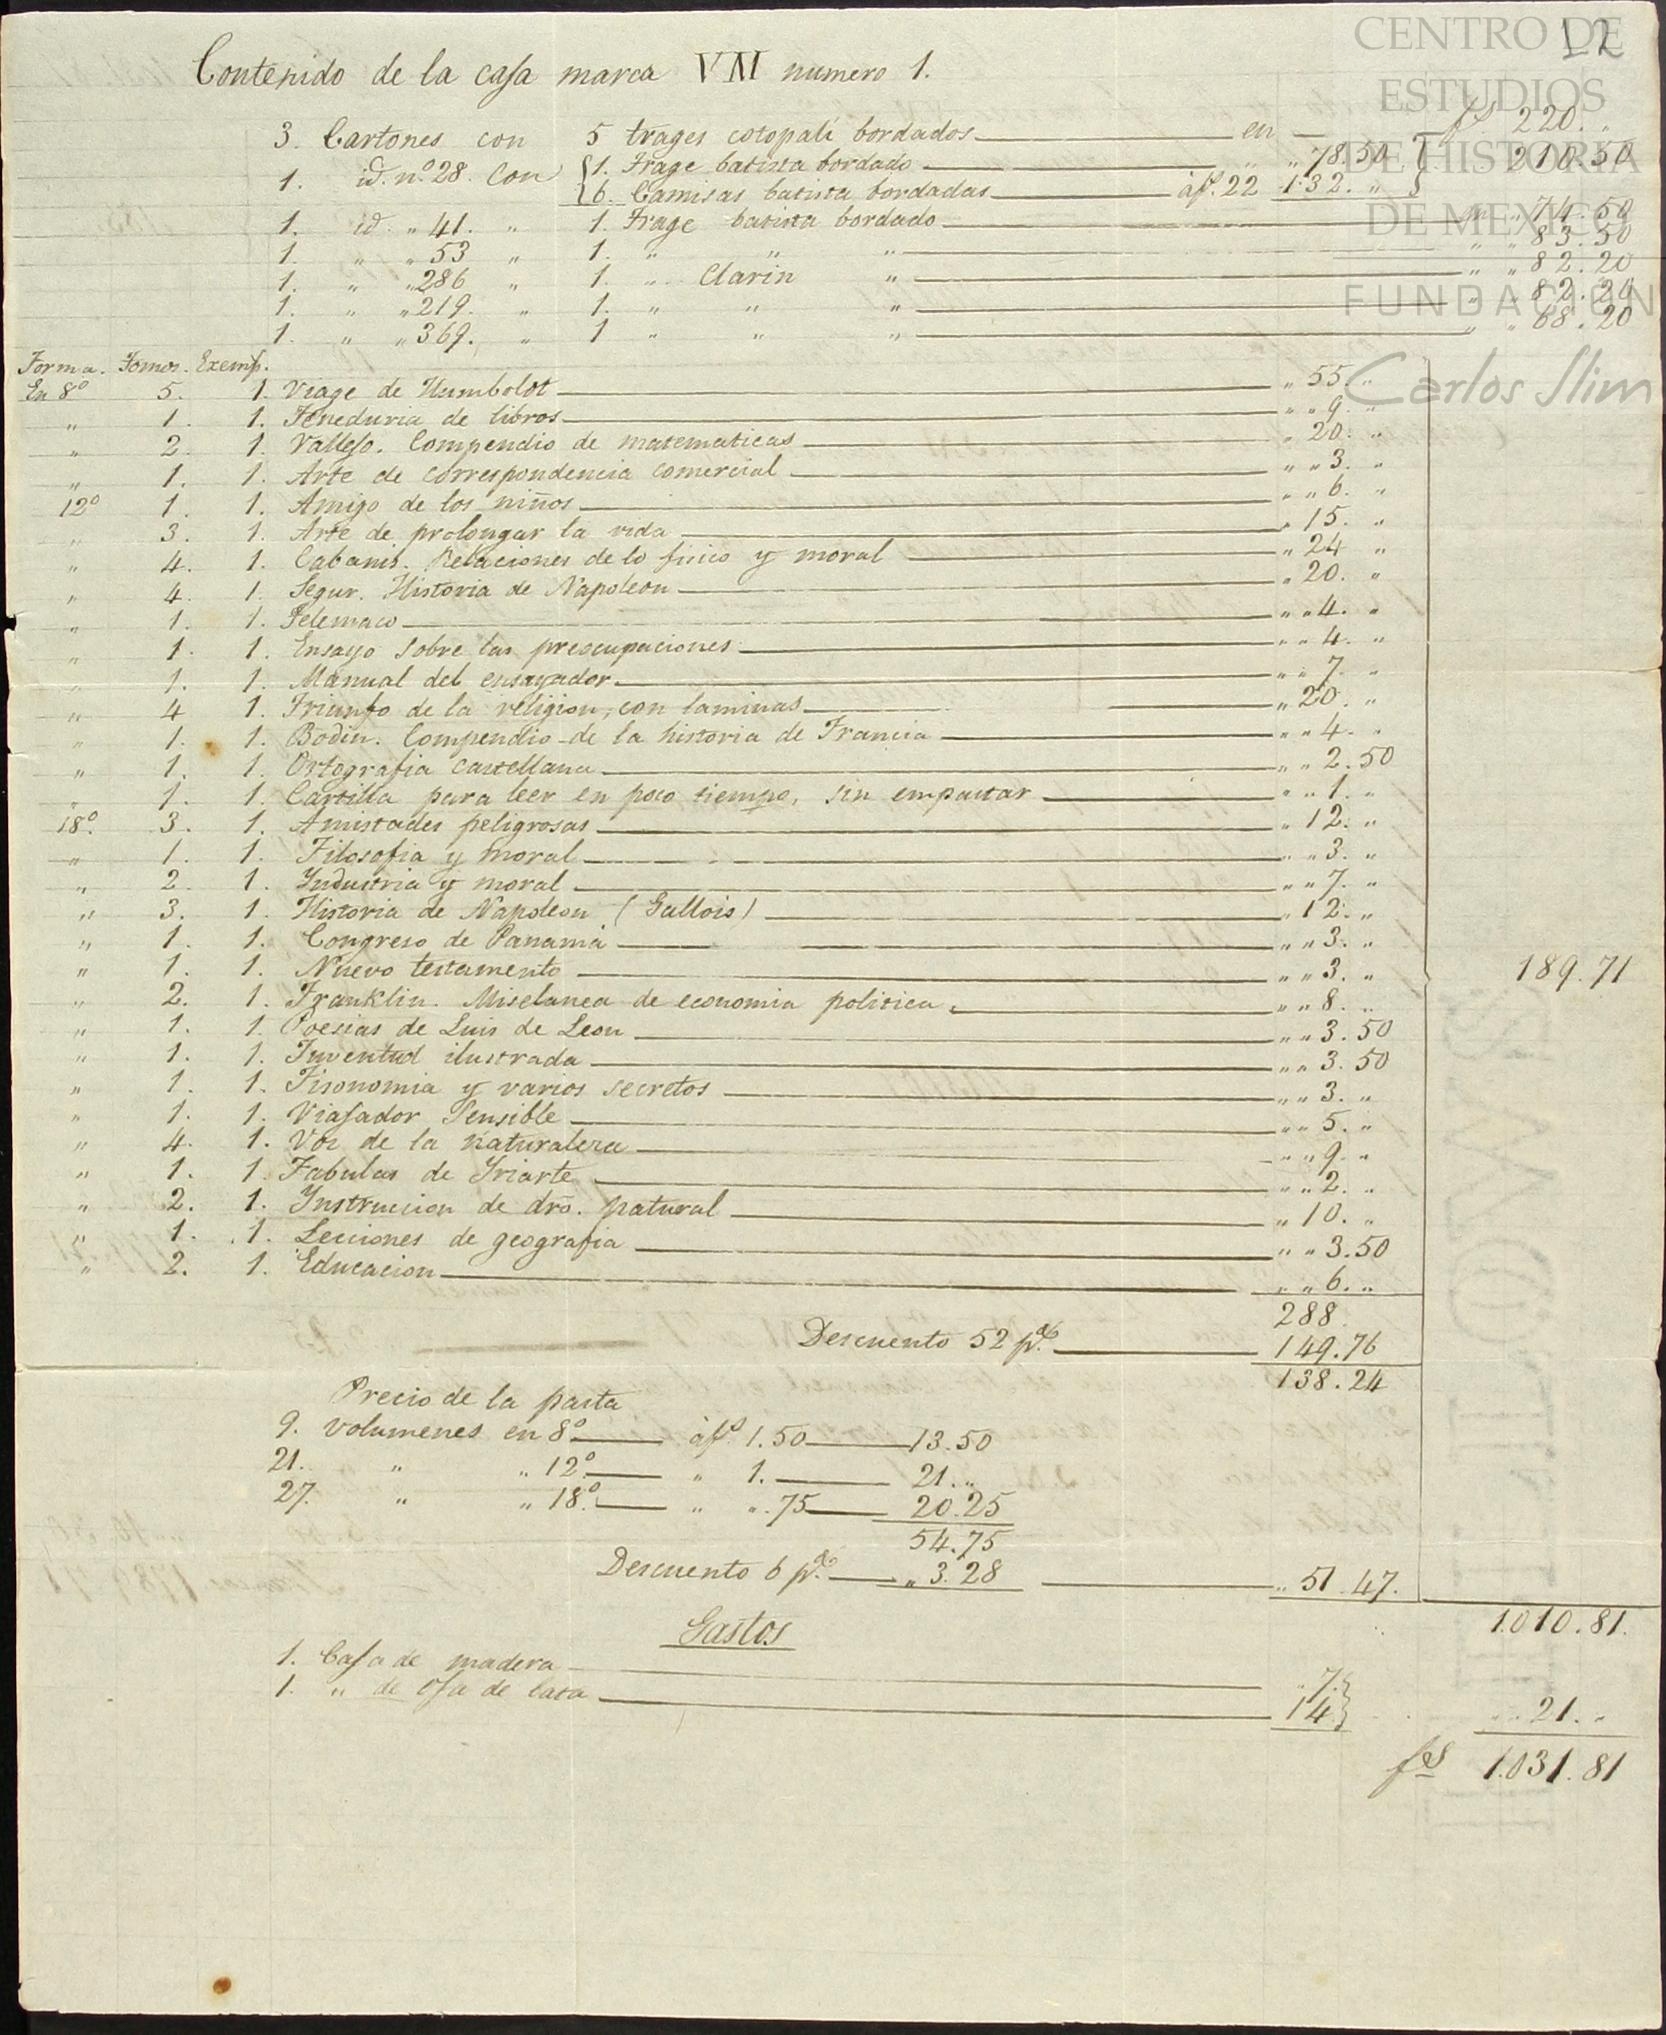 12
CENTRO DE
ESTUDIOS
DE HISTORIA
DE MEXICO
FUNDACION
Carlos Slim
Contenido de la casa marca VM numero 1.
3. Cartones con 5 trages cotopali bordados en fs 220. "
1. id. nº 28. con { 1. Trage batista bordado " " 78.50 } 210.50
{ 6. Camisas batista bordadas à fs. 22 132. " }
1. id. " 41. " 1. Trage batista bordado " " 74.50
1. " " 53 " 1. " " " " " 83.50
1. " " 286 " 1. " Clarin " " " 82.20
1. " " 219. " 1. " " " " " 82.20
1. " " 369. " 1 " " " " " 68.20
Forma. Tomos. Exemp.
En 8º 5. 1. Viage de Humboldt " 55. "
" 1. 1. Teneduria de libros " " 9. "
" 2. 1. Vallejo. Compendio de matematicas " 20. "
" 1. 1. Arte de correspondencia comercial " " 3. "
12º 1. 1. Amigo de los niños " " 6. "
" 3. 1. Arte de prolongar la vida " 15. "
" 4. 1. Cabanis. Relaciones de lo fisico y moral " 24 "
" 4. 1. Segur. Historia de Napoleon " 20. "
" 1. 1. Telemaco " " 4. "
" 1. 1. Ensayo sobre las preocupaciones " " 4. "
" 1. 1. Manual del ensayador " " 7. "
" 4 1. Triunfo de la religion, con laminas " 20. "
" 1. 1. Bodin. Compendio de la historia de Francia " " 4. "
" 1. 1. Ortografia castellana " " 2.50
" 1. 1. Cartilla para leer en poco tiempo, sin empastar " " 1. "
18º. 3. 1. Amistades peligrosas " 12. "
" 1. 1. Filosofia y moral " " 3. "
" 2. 1. Industria y moral " " 7. "
" 3. 1. Historia de Napoleon (Gallois) " 12. "
" 1. 1. Congreso de Panamà " " 3. "
" 1. 1. Nuevo testamento " " 3. " 189.71
" 2. 1. Franklin. Miselanea de economia politica. " " 8. "
" 1. 1. Poesias de Luis de Leon " " 3.50
" 1. 1. Juventud ilustrada " " 3.50
" 1. 1. Fisonomia y varios secretos " " 3. "
" 1. 1. Viajador Sensible " " 5. "
" 4. 1. Voz de la naturaleza " " 9. "
" 1. 1. Fabulas de Yriarte " " 2. "
" 2. 1. Instruccion de dro. natural " 10. "
" 1. 1. Lecciones de geografia " " 3.50
" 2. 1. Educacion " " 6. "
288.
Descuento 52 p% 149.76
138.24
Precio de la pasta
9. volumenes en 8º à fs 1.50 13.50
21. " " 12º " 1. 21. "
27. " " 18º. " " .75 20.25
54.75
Descuento 6 p% " 3.28 " 51.47.
1.010.81.
Gastos
1. Casa de madera " 7. }
1. " de oja de lata 14 } " " 21. "
fs 1.031.81